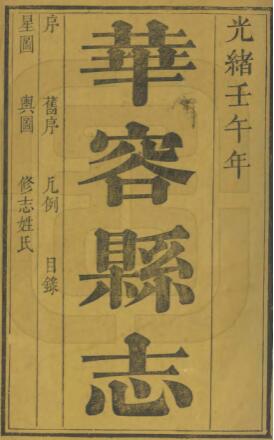 光緒壬午年
華容縣志
序 舊序 凡例 目錄
星圖 輿圖 修志姓氏